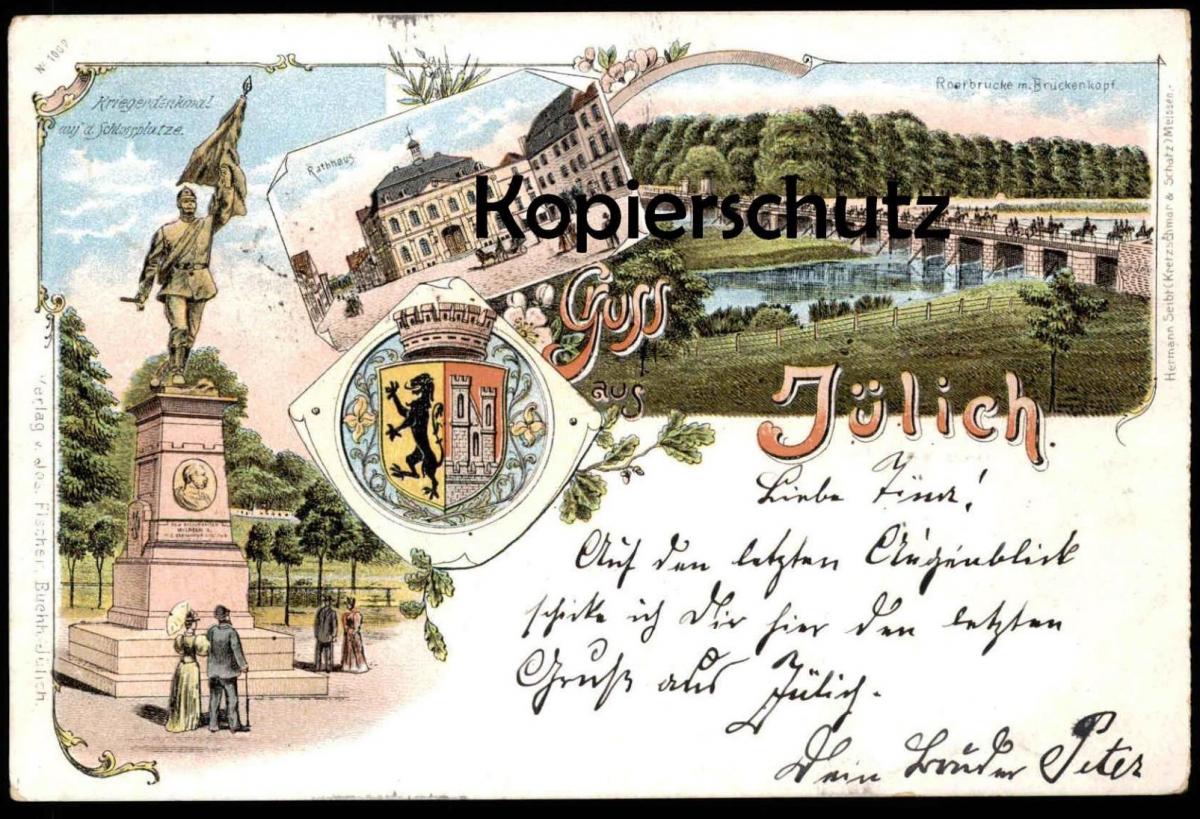 Nr. 1987
Kriegerdenkmal
auf d. Schlossplatze.
Rathhaus.
Roerbrücke m. Brückenkopf.
Kopierschutz
Gruss
aus
Jülich.
Liebe Tina!
Auf den letzten Augenblick
schicke ich Dir hier den letzten
Gruß aus Jülich.
Dein Bruder Peter
Verlag v. Jos. Fischer, Buchh. Jülich.
Hermann Seibt (Kretzschmar & Schatz) Meissen.